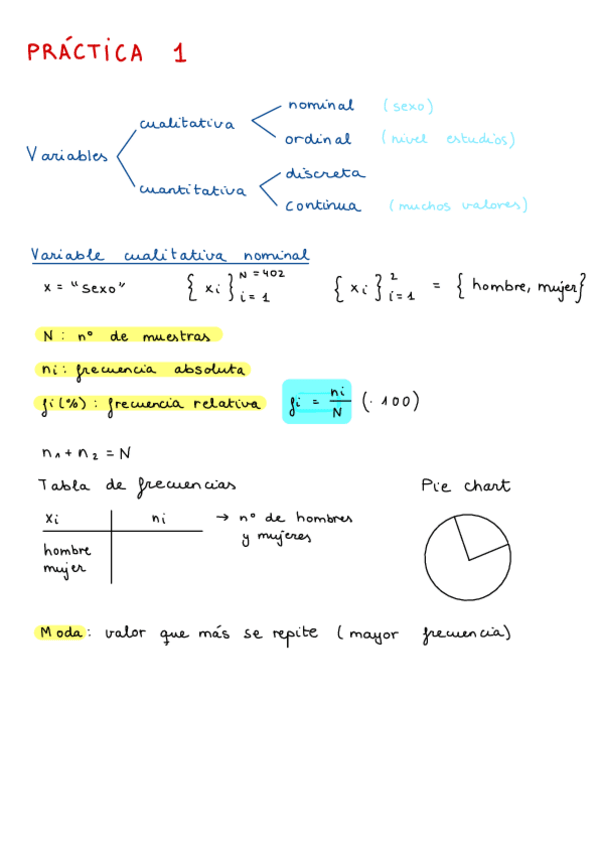 PRÁCTICA 1
nominal (sexo)
cualitativa
ordinal (nivel estudios)
Variables
discreta
cuantitativa
continua (muchos valores)
Variable cualitativa nominal
x = "sexo" { xi }_{i=1}^{N=402} { xi }_{i=1}^{2} = { hombre, mujer }
N : nº de muestras
ni : frecuencia absoluta
fi (%) : frecuencia relativa fi = ni/N (· 100)
n₁ + n₂ = N
Tabla de frecuencias Pie chart
xi ni → nº de hombres
y mujeres
hombre
mujer
Moda : valor que más se repite (mayor frecuencia)